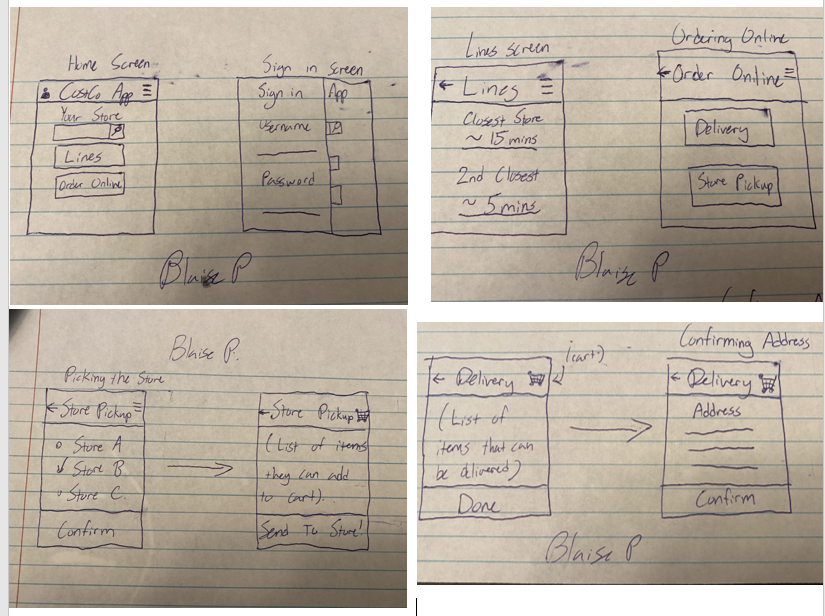 Home Screen
Costco App
Your Store
Lines
Order Online
Sign in Screen
Sign in
App
Username
Password
Blaise P
Lines Screen
Lines
Closest Store
~ 15 mins
2nd Closest
~ 5 mins
Ordering Online
Order Online
Delivery
Store Pickup
Blaise P
Blaise P.
Picking the Store
Store Pickup
Store A
Store B
Store C
Confirm
Store Pickup
(List of items
they can add
to cart).
Send To Store!
(cart)
Delivery
(List of
items that can
be delivered)
Done
Confirming Address
Delivery
Address
Confirm
Blaise P